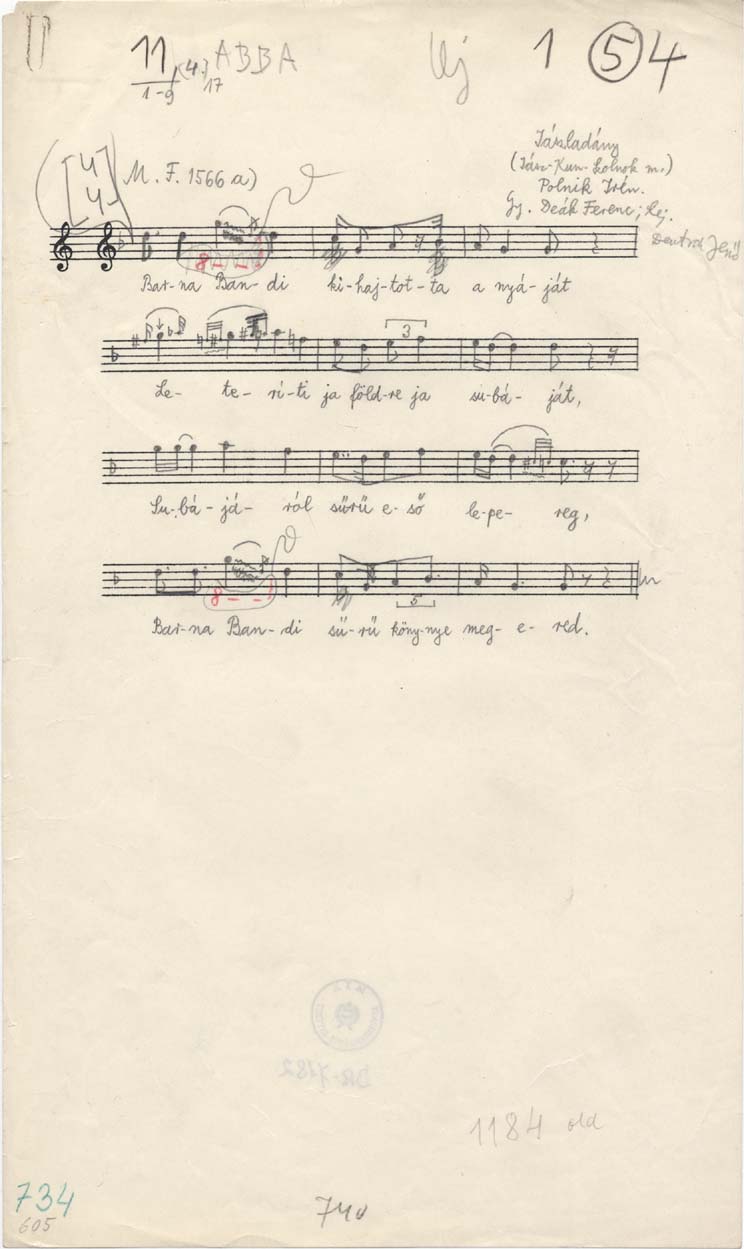 11 (4.) ABBA Uj 1 5 4
1-9 17
4
4
M. F. 1566 a)
Jászladány
(Jász-Kun-Szolnok m.)
Polnik Irén.
Gy. Deák Ferenc; lej.
Deutsch Jenő
8
Bar-na Ban-di ki-haj-tot-ta a nyá-ját
3
Le- te-rí-ti ja föld-re ja su-bá-ját,
Su-bá-já-ról sűrű e-ső le-pe-reg,
8
5
Bar-na Ban-di sű-rű köny-nye meg-e-red.
DR-7182
1184 old
734
605
740